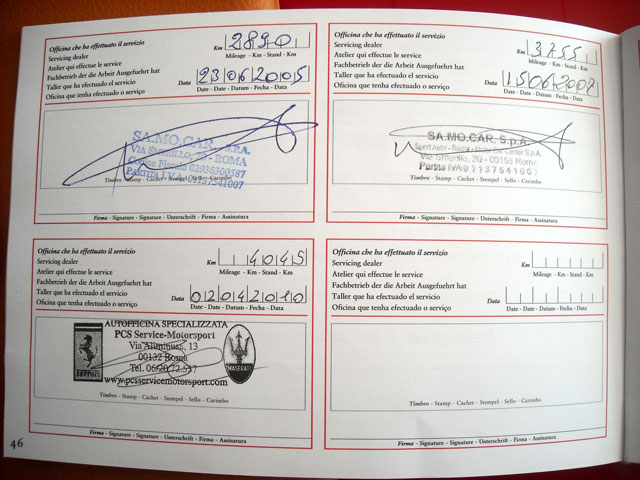 Officina che ha effettuato il servizio
Servicing dealer
Atelier qui effectue le service
Fachbetrieb der die Arbeit Ausgefuehrt hat
Taller que ha efectuado el servicio
Oficina que tenha efectuado o serviço
Km 2890
Mileage - Km - Stand - Km
Data 23062005
Date - Date - Datum - Fecha - Data
SA.MO.CAR. S.P.A.
ROMA
Timbro - Stamp - Cachet - Stempel - Sello - Carimbo
Firma - Signature - Signature - Unterschrift - Firma - Assinatura
Officina che ha effettuato il servizio
Servicing dealer
Atelier qui effectue le service
Fachbetrieb der die Arbeit Ausgefuehrt hat
Taller que ha efectuado el servicio
Oficina que tenha efectuado o serviço
Km 3755
Mileage - Km - Stand - Km
Data 15062007
Date - Date - Datum - Fecha - Data
SA.MO.CAR. S.p.A.
20 - 00158 Roma
Partita IVA 01137541007
Timbro - Stamp - Cachet - Stempel - Sello - Carimbo
Firma - Signature - Signature - Unterschrift - Firma - Assinatura
Officina che ha effettuato il servizio
Servicing dealer
Atelier qui effectue le service
Fachbetrieb der die Arbeit Ausgefuehrt hat
Taller que ha efectuado el servicio
Oficina que tenha efectuado o serviço
Km 4045
Mileage - Km - Stand - Km
Data 02042010
Date - Date - Datum - Fecha - Data
AUTOFFICINA SPECIALIZZATA
PCS Service-Motorsport
Via Aliminusa, 13
00132 Roma
Tel.
www.pcsservicemotorsport.com
Ferrari
MASERATI
Timbro - Stamp - Cachet - Stempel - Sello - Carimbo
Firma - Signature - Signature - Unterschrift - Firma - Assinatura
Officina che ha effettuato il servizio
Servicing dealer
Atelier qui effectue le service
Fachbetrieb der die Arbeit Ausgefuehrt hat
Taller que ha efectuado el servicio
Oficina que tenha efectuado o serviço
Km
Mileage - Km - Stand - Km
Data
Date - Date - Datum - Fecha - Data
Timbro - Stamp - Cachet - Stempel - Sello - Carimbo
Firma - Signature - Signature - Unterschrift - Firma - Assinatura
46